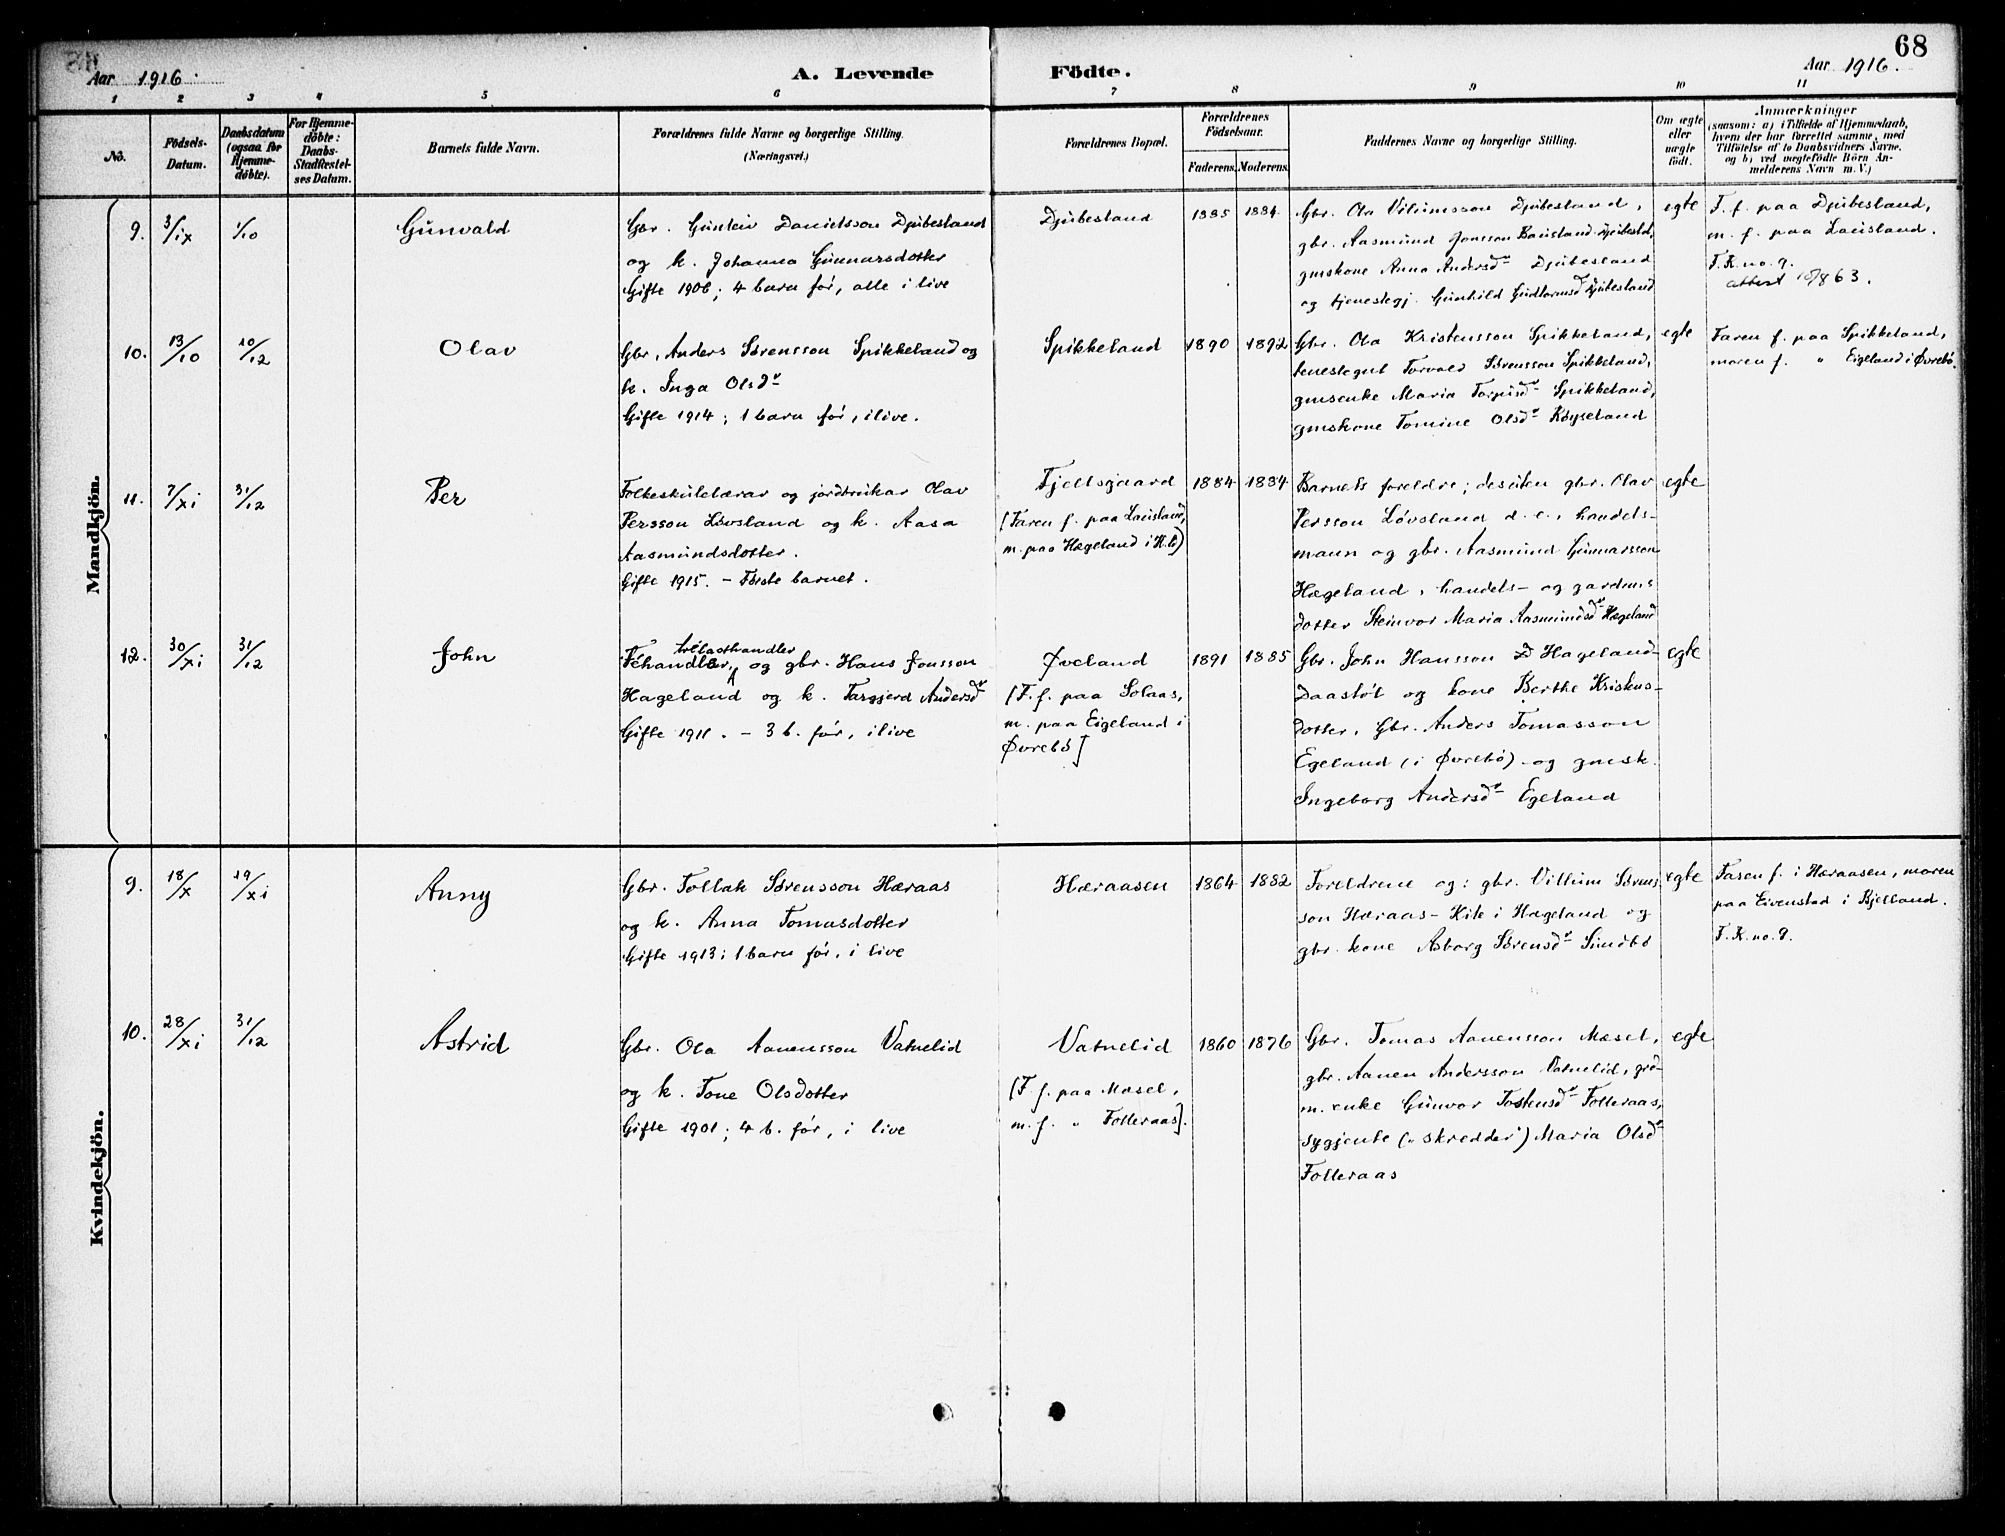 68
Aar 1916.
A. Levende Födte.
Aar 1916.
1 2 3 4 5 6 7 8 9 10 11
No.
Födsels-
Datum.
Daabsdatum
(ogsaa for
Hjemme-
döbte).
For Hjemme-
döbte:
Daabs-
Stadfæstel-
ses Datum.
Barnets fulde Navn.
Forældrenes fulde Navne og borgerlige Stilling.
(Næringsvei.)
Forældrenes Bopæl.
Forældrenes
Födselsaar.
Faderens. Moderens.
Faddernes Navne og borgerlige Stilling.
Om ægte
eller
uægte
födt.
Anmærkninger
(saasom: a) i Tilfælde af Hjemmedaab,
hvem der har forrettet samme, med
Tilföielse af to Daabsvidners Navne,
og b) ved uægtefödte Börn An-
melderens Navn m. V.)
Mandkjön.
9. 3/ix 1/10 Gunvald
Gbr. Gunleiv Danielsson Djubesland
og k. Johanna Gunnarsdotter
Gifte 1906; 4 barn før, alle i live
Djubesland 1885 1884
Gbr. Ola Vilumsson Djubesland,
gbr. Aasmund Jonsson Bausland-Djubesld,
gmskone Anna Andersdr Djubesland
og tjenestegj. Gunhild Gudtormsdr Djubesland
egte
F. f. paa Djubesland,
m. f. paa Lausland.
F. K. no. 9.
attest 10/8 63.
10. 13/10 10/12 Olav
Gbr. Anders Sørensson Spikkeland og
k. Inga Olsdr
Gifte 1914; 1 barn før, i live.
Spikkeland 1890 1892
Gbr. Ola Kristensson Spikkeland,
tenestegut Torvald Sørensson Spikkeland,
gmsenke Maria Torjusdr Spikkeland,
gmskone Tomine Olsdr Røyseland
egte
Faren f. paa Spikkeland,
moren f. " Eigeland i Øvrebø.
11. 7/xi 31/12 Per
Folkeskulelærar og jordbrukar Olav
Persson Løvsland og k. Aasa
Aasmundsdotter.
Gifte 1915. – Første barnet.
Fjellsgaard 1884 1884
[Faren f. paa Lausland,
m. paa Hægeland i H.ld)
Barnets foreldre; desuten gbr. Olav
Persson Løvsland d. e., handels-
mann og gbr. Aasmund Gunnarsson
Hægeland, handels- og gardm.s
dotter Steinvor Maria Aasmundsdr Hægeland
egte
12. 30/xi 31/12 John
trelasthandler
Fehandler, og gbr. Hans Jonsson
Hageland og k. Targjerd Andersdr
Gifte 1911. – 3 b. før, i live
Øveland 1891 1885
[F. f. paa Solaas,
m. paa Eigeland i
Øvrebø]
Gbr. John Hansson Hageland-
daastøl og kone Berthe Kristens-
dotter, Gbr. Anders Tomasson
Egeland (i Øvrebø) og gmsk.
Ingeborg Andersdr Egeland
egte
Kvindekjön.
9. 18/x 19/xi Anny
Gbr. Tollak Sørensson Hæraas
og k. Anna Tomasdotter
Gifte 1913; 1 barn før, i live
Hæraasen 1864 1882
Foreldrene og: gbr. Villum Sørens-
son Hæraas-Kile i Hægeland og
gbr. kone Asborg Sørensdr Sundbø
egte
Faren f. i Hæraasen, moren
paa Eivenstad i Bjelland.
F. K. no. 9.
10. 28/xi 31/12 Astrid
Gbr. Ola Aanensson Vatnelid
og k. Tone Olsdotter
Gifte 1901; 4 b. før, i live
Vatnelid 1860 1876
[F. f. paa Mæsel,
m. f. " Folleraas].
Gbr. Tomas Aanensson Mæsel,
gbr. Aanen Andersson Vatnelid, grd-
m. enke Gunvor Tostensdr Folleraas,
sygjente (" skredder") Maria Olsdr
Folleraas
egte